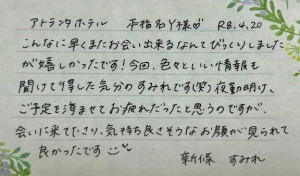 アトランタホテル 本指名Y様♡ R8.4.20
こんなに早くまたお会い出来るなんてびっくりしました
が嬉しかったです！今回、色々といい情報も
聞けて得した気分のすみれです(笑)夜勤明け、
ご予定を済ませてお疲れだったと思うのですが、
会いに来て下さり、気持ち良さそうなお顔が見られて
良かったです
新條 すみれ